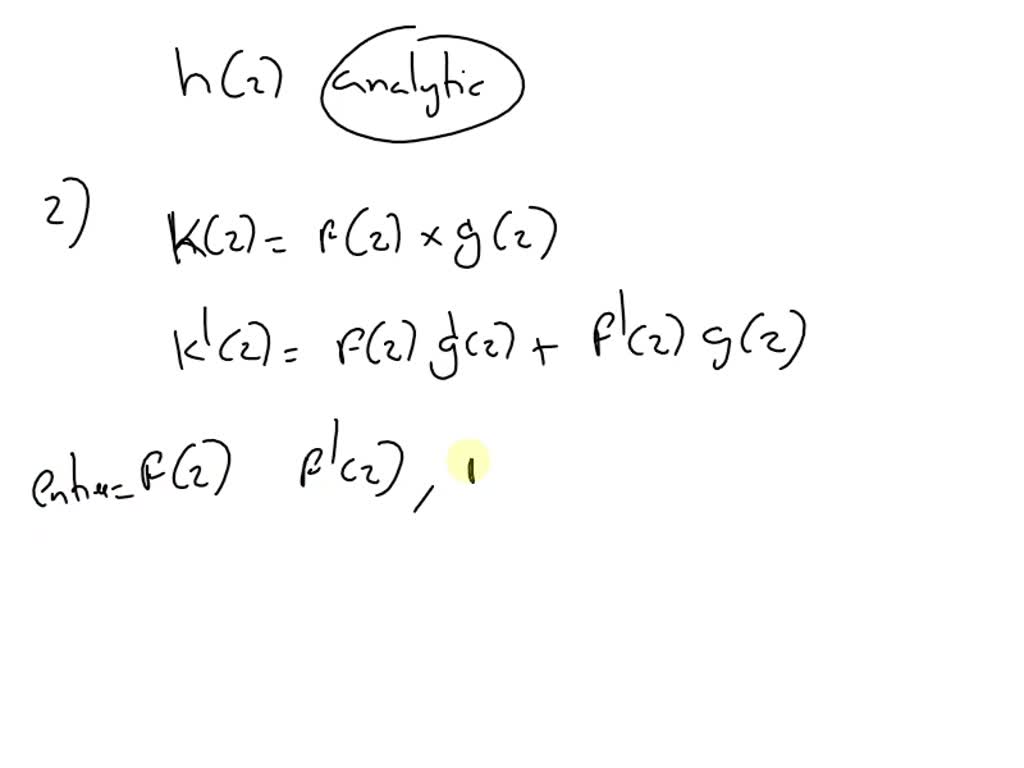 h(z) analytic
2)
K(z) = F(z) × g(z)
K'(z) = F(z) g'(z) + F'(z) g(z)
F(z) F'(z),